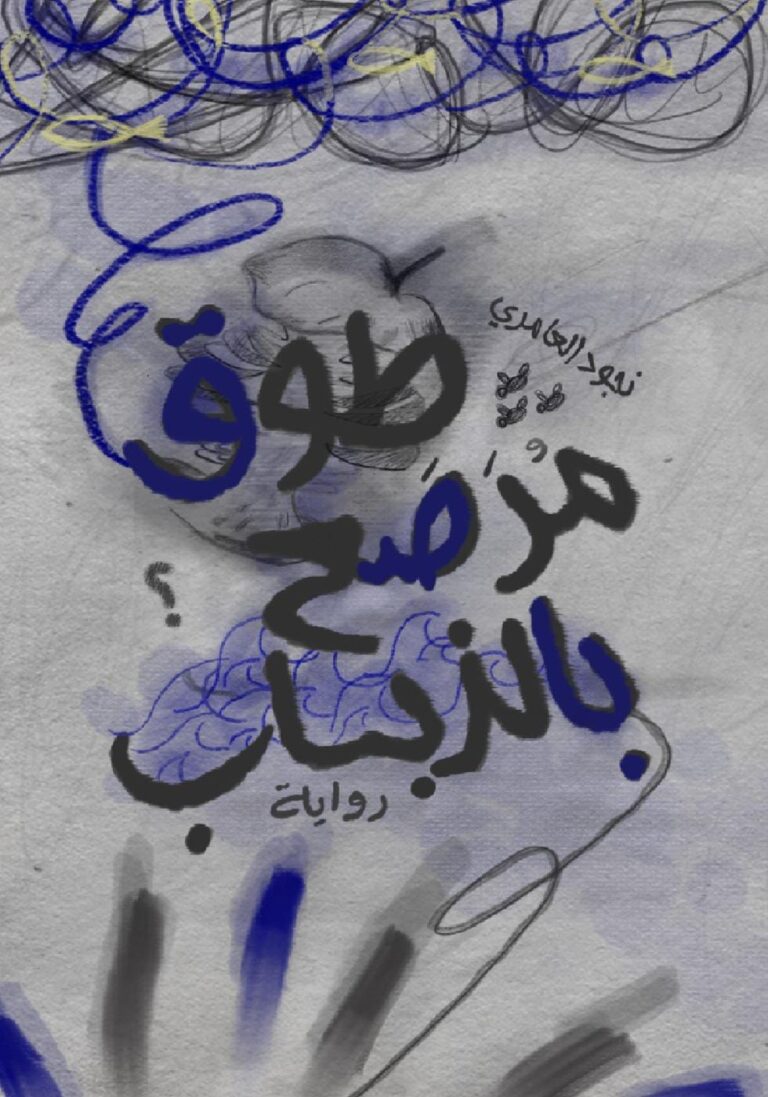 نجود العامري
طوق
مُرَصَع
؟
بالذباب
رواية